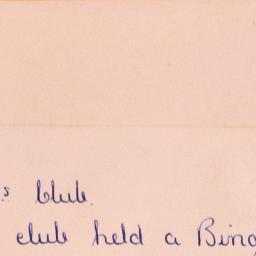 s Club.
club held a Bing